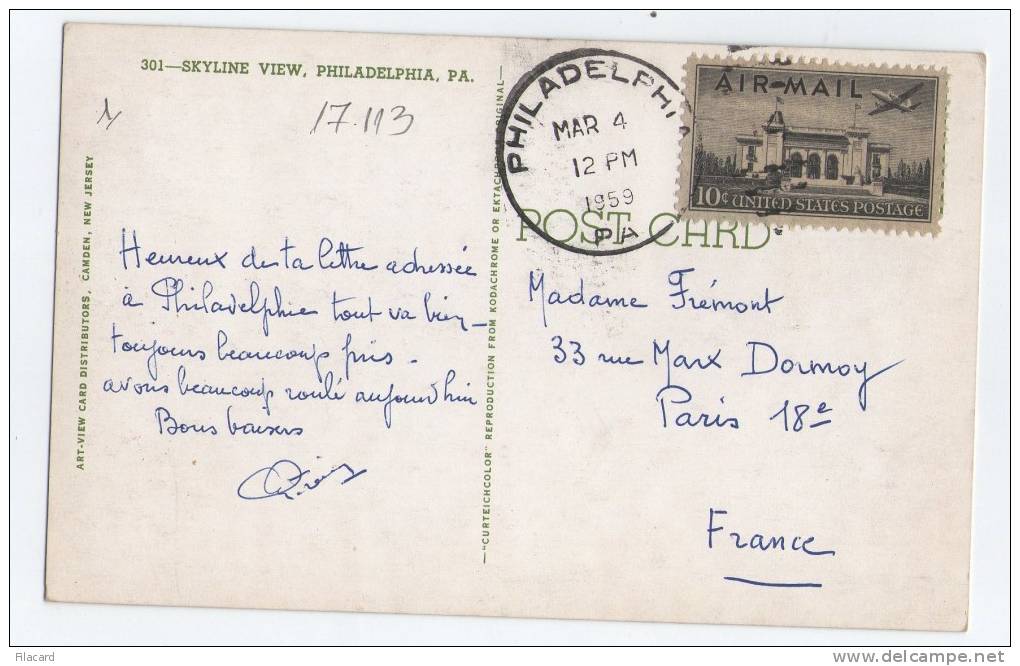 301—SKYLINE VIEW, PHILADELPHIA, PA.
17.113
ART-VIEW CARD DISTRIBUTORS, CAMDEN, NEW JERSEY
Heureux de ta lettre adressée
à Philadelphie tout va bien -
toujours beaucoup pris -
avons beaucoup roulé aujourd'hui
Bons baisers
—"CURTEICHCOLOR" REPRODUCTION FROM KODACHROME OR EKTACHROME ORIGINAL—
PHILADELPHIA
MAR 4
12 PM
1959
PA
AIR-MAIL
10¢ UNITED STATES POSTAGE
POST CARD
Madame Frémont
33 rue Marx Dormoy
Paris 18e
France
Filacard
delcampe.net